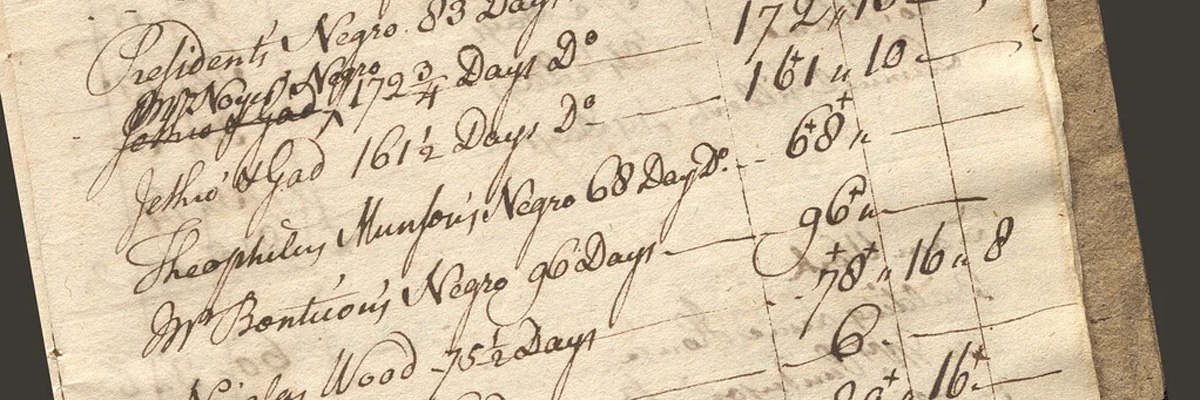 Presidents Negro. 83 Days
Mrs. Noyes' Negro
Jethro & Gad 172 3/4 Days Do 172 " 10
Jethro & Gad 161 1/2 Days Do 161 " 10
Theophilus Munson's Negro 68 Days Do. 68 "
Mr Bontuous Negro 96 Days 96 "
78 " 16 " 8
Wood 75 1/2 Days
6
16